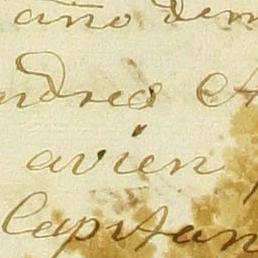 año de m
ndres A
avien
Capitan